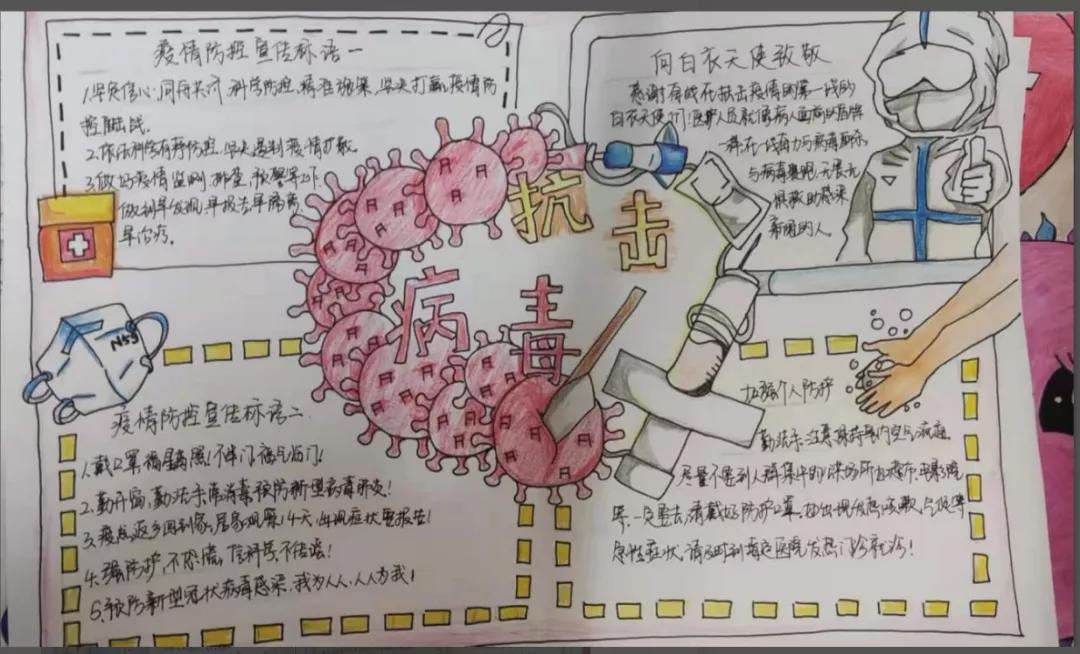 疫情防控宣传标语一
1.坚定信心、同舟共济、科学防控、精准施策、坚决打赢疫情防
控阻击战.
2.依法科学有序防控,坚决遏制疫情扩散.
3.做好疫情监测、排查、预警等工作.
做到早发现、早报告、早隔离、
早治疗。
向白衣天使致敬
感谢奋战在抗击疫情的第一线的
白衣天使们!医护人员就像病人面前的盾牌
一样,在一线奋力与病毒厮杀
与病毒赛跑,
救助感染
的人.
抗击
病毒
N95
疫情防控宣传标语二.
1.戴口罩福星高照!不串门福气临门!
2.勤开窗,勤洗手,消毒预防新型病毒肺炎!
3.疫点返乡回到家,居家观察14天,出现症状要报告!
4.强防护,不恐慌,信科学,不传谣!
5.预防新型冠状病毒感染,我为人人,人人为我!
加强个人防护
勤洗手.注意保持室内空气流通.
尽量不要到人群集中的
一定要去,请戴好防护口罩。如出现发热咳嗽、
急性症状,请及时到 医院发热门诊就诊!